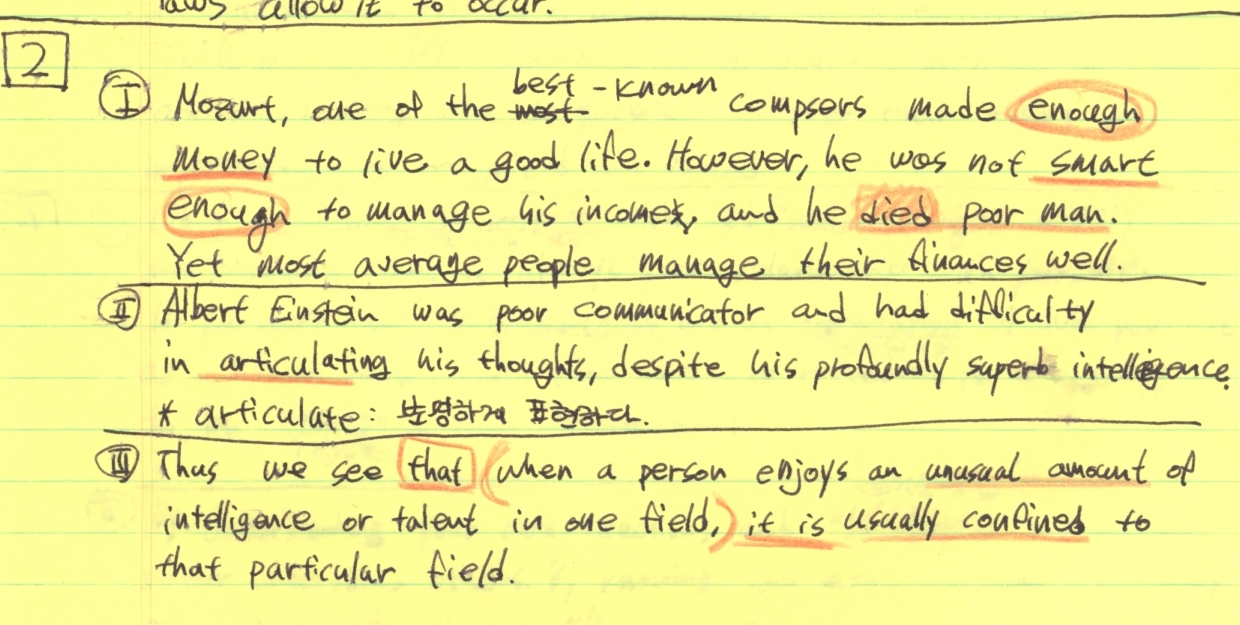 laws allow it to occur.
2
Ⅰ Mozart, one of the best-known compsors made enough
money to live a good life. However, he was not smart
enough to manage his income, and he died poor man.
Yet most average people manage their finances well.
Ⅱ Albert Einstein was poor communicator and had difficulty
in articulating his thoughts, despite his profoundly superb intelligence.
* articulate: 분명하게 표현하다.
Ⅲ Thus we see that (when a person enjoys an unusual amount of
intelligence or talent in one field,) it is usually confined to
that particular field.